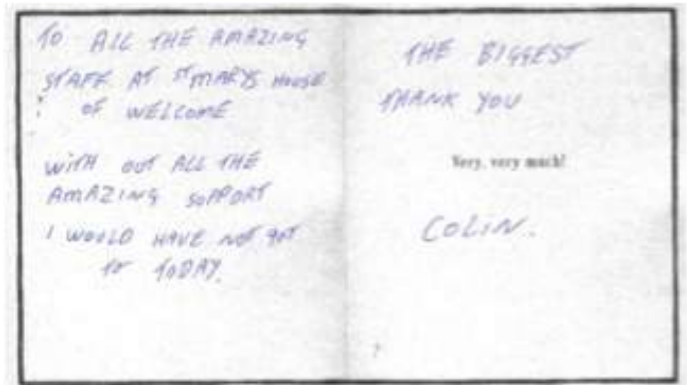 TO ALL THE AMAZING
STAFF AT ST MARYS HOUSE
OF WELCOME
WITH OUT ALL THE
AMAZING SUPPORT
I WOULD HAVE NOT GOT
TO TODAY.
THE BIGGEST
THANK YOU
Very, very much!
COLIN.